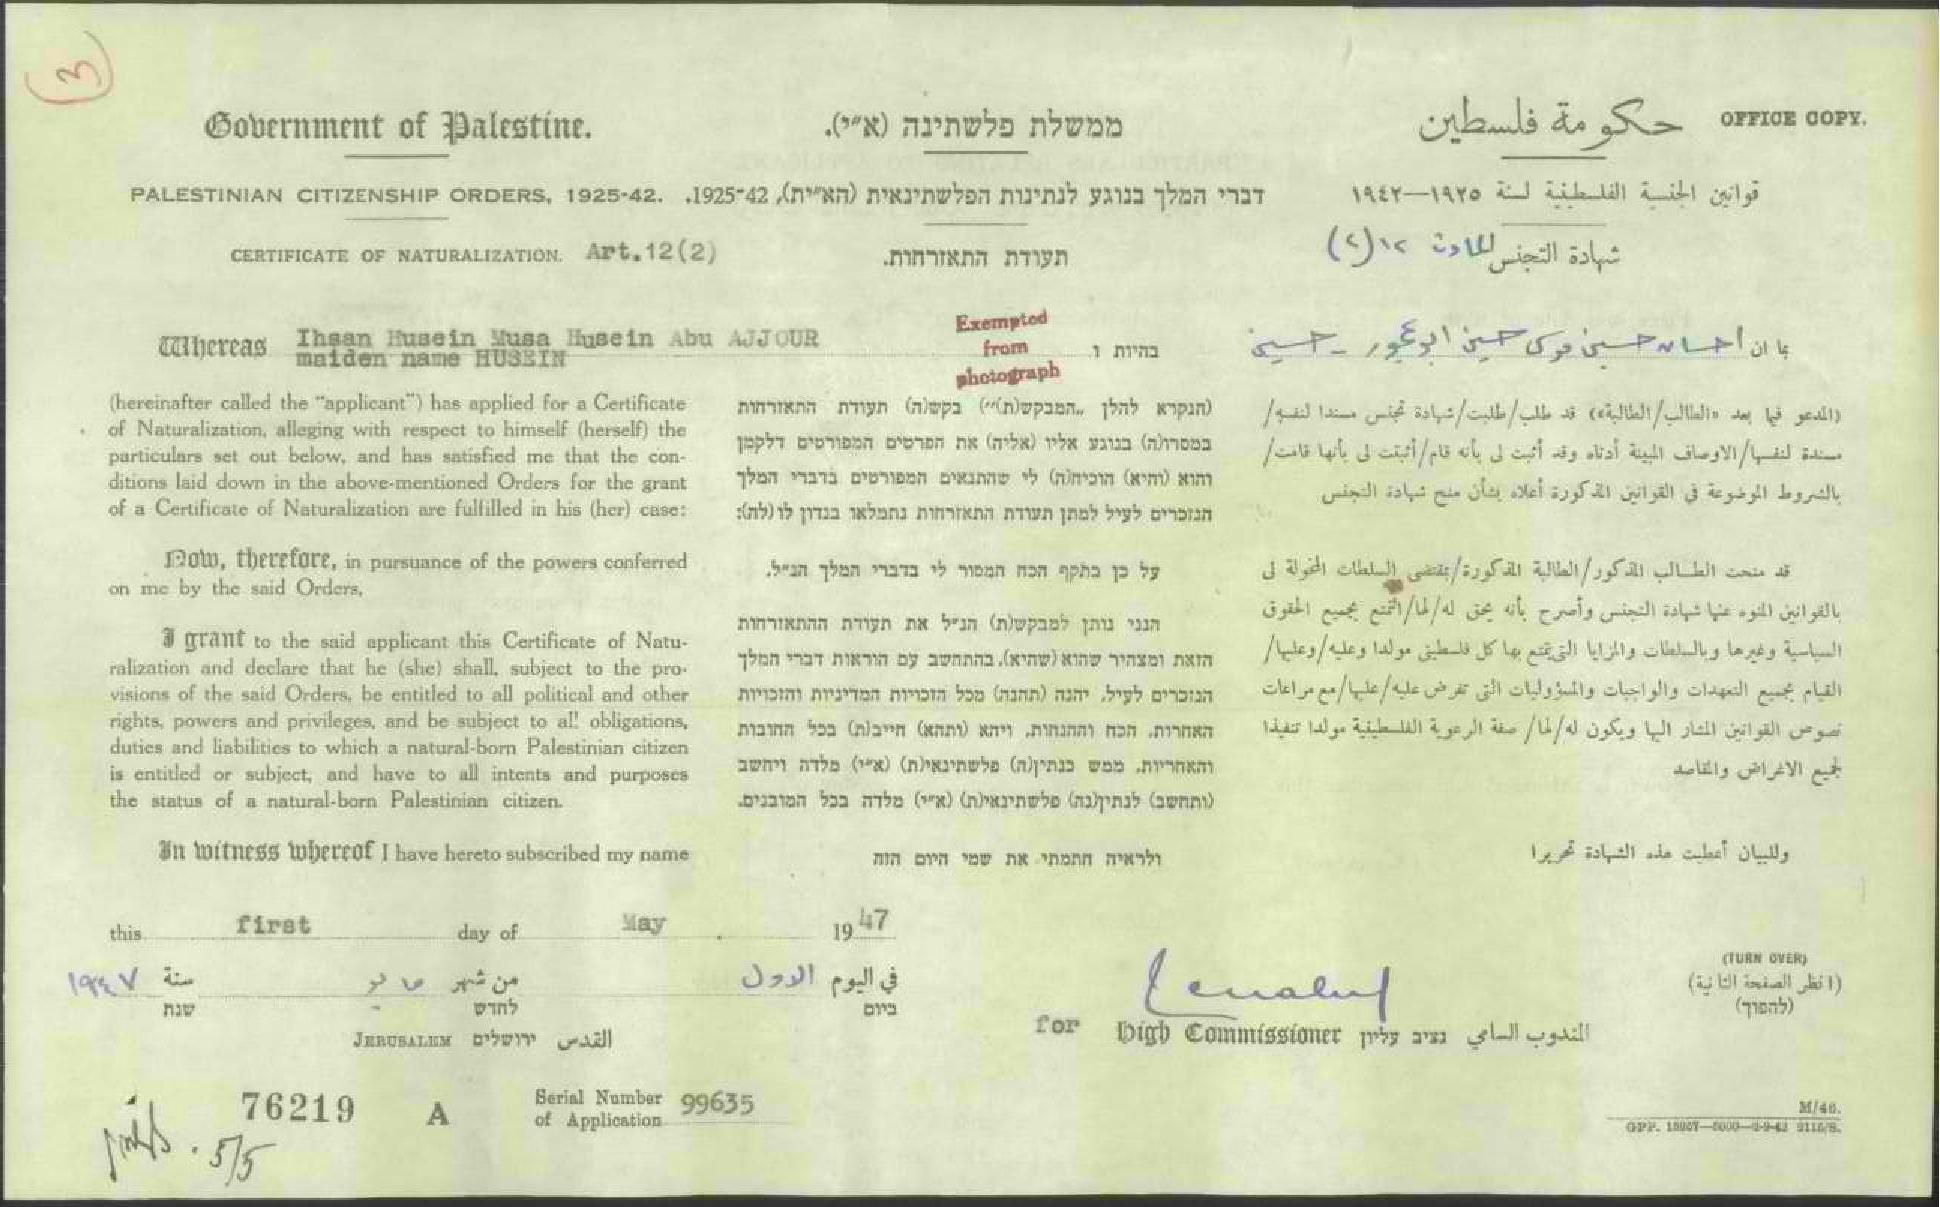 (3)
Government of Palestine.
PALESTINIAN CITIZENSHIP ORDERS, 1925-42.
CERTIFICATE OF NATURALIZATION. Art.12(2)
ממשלת פלשתינה (א״י).
דברי המלך בנוגע לנתינות הפלשתינאית (הא״ית), 1925-42.
תעודת התאזרחות.
حكومة فلسطين
OFFICE COPY.
قوانين الجنسية الفلسطينية لسنة ١٩٢٥—١٩٤٢
شهادة التجنس المادة ١٢ (٢)
Whereas Ihsan Husein Musa Husein Abu AJJOUR
maiden name HUSEIN
(hereinafter called the "applicant") has applied for a Certificate
of Naturalization, alleging with respect to himself (herself) the
particulars set out below, and has satisfied me that the con-
ditions laid down in the above-mentioned Orders for the grant
of a Certificate of Naturalization are fulfilled in his (her) case:
Now, therefore, in pursuance of the powers conferred
on me by the said Orders,
I grant to the said applicant this Certificate of Natu-
ralization and declare that he (she) shall, subject to the pro-
visions of the said Orders, be entitled to all political and other
rights, powers and privileges, and be subject to all obligations,
duties and liabilities to which a natural-born Palestinian citizen
is entitled or subject, and have to all intents and purposes
the status of a natural-born Palestinian citizen.
In witness whereof I have hereto subscribed my name
Exempted
from
photograph
בהיות ו
(הנקרא להלן „המבקש(ת)״) בקש(ה) תעודת התאזרחות
במסרו(ה) בנוגע אליו (אליה) את הפרטים המפורטים דלקמן
והוא (והיא) הוכיח(ה) לי שהתנאים המפורטים בדברי המלך
הנזכרים לעיל למתן תעודת התאזרחות נתמלאו בנדון לו (לה):
על כן בתקף הכח המסור לי בדברי המלך הנ״ל,
הנני נותן למבקש(ת) הנ״ל את תעודת ההתאזרחות
הזאת ומצהיר שהוא (שהיא), בהתחשב עם הוראות דברי המלך
הנזכרים לעיל, יהנה (תהנה) מכל הזכויות המדיניות והזכויות
האחרות, הכח וההנחות, ויהא (ותהא) חייב(ת) בכל החובות
והאחריות, ממש כנתין(ה) פלשתינאי(ת) (א״י) מלדה ויחשב
(ותחשב) לנתין(נה) פלשתינאי(ת) (א״י) מלדה בכל המובנים.
ולראיה חתמתי את שמי היום הזה
بما ان احسان حسين موسى حسين ابو عجور - حسين
(المدعو فيما بعد «الطالب/الطالبة») قد طلب/طلبت/شهادة تجنس مسندا لنفسه/
مسندة لنفسها/الاوصاف المبينة أدناه وقد أثبت لى بأنه قام/أثبتت لى بأنها قامت/
بالشروط الموضوعة في القوانين المذكورة أعلاه بشأن منح شهادة التجنس
قد منحت الطالب المذكور/الطالبة المذكورة/بمقتضى السلطات المخولة لى
بالقوانين المنوه عنها شهادة التجنس وأصرح بأنه يحق له/لها/التمتع بجميع الحقوق
السياسية وغيرها وبالسلطات والمزايا التي يتمتع بها كل فلسطيني مولدا وعليه/وعليها/
القيام بجميع التعهدات والواجبات والمسؤوليات التى تفرض عليه/عليها/مع مراعات
نصوص القوانين المشار اليها ويكون له/لها/ صفة الرعوية الفلسطينية مولدا تنفيذا
لجميع الاغراض والمقاصد
وللبيان أعطيت هذه الشهادة تحريرا
this first day of May 1947
في اليوم الاول من شهر مايو سنة ١٩٤٧
ביום לחדש שנת
JERUSALEM ירושלים القدس
for High Commissioner נציב עליון المندوب السامي
(TURN OVER)
(انظر الصفحة الثانية)
(להפוך)
76219 A
Serial Number
of Application 99635
5/5
M/46.